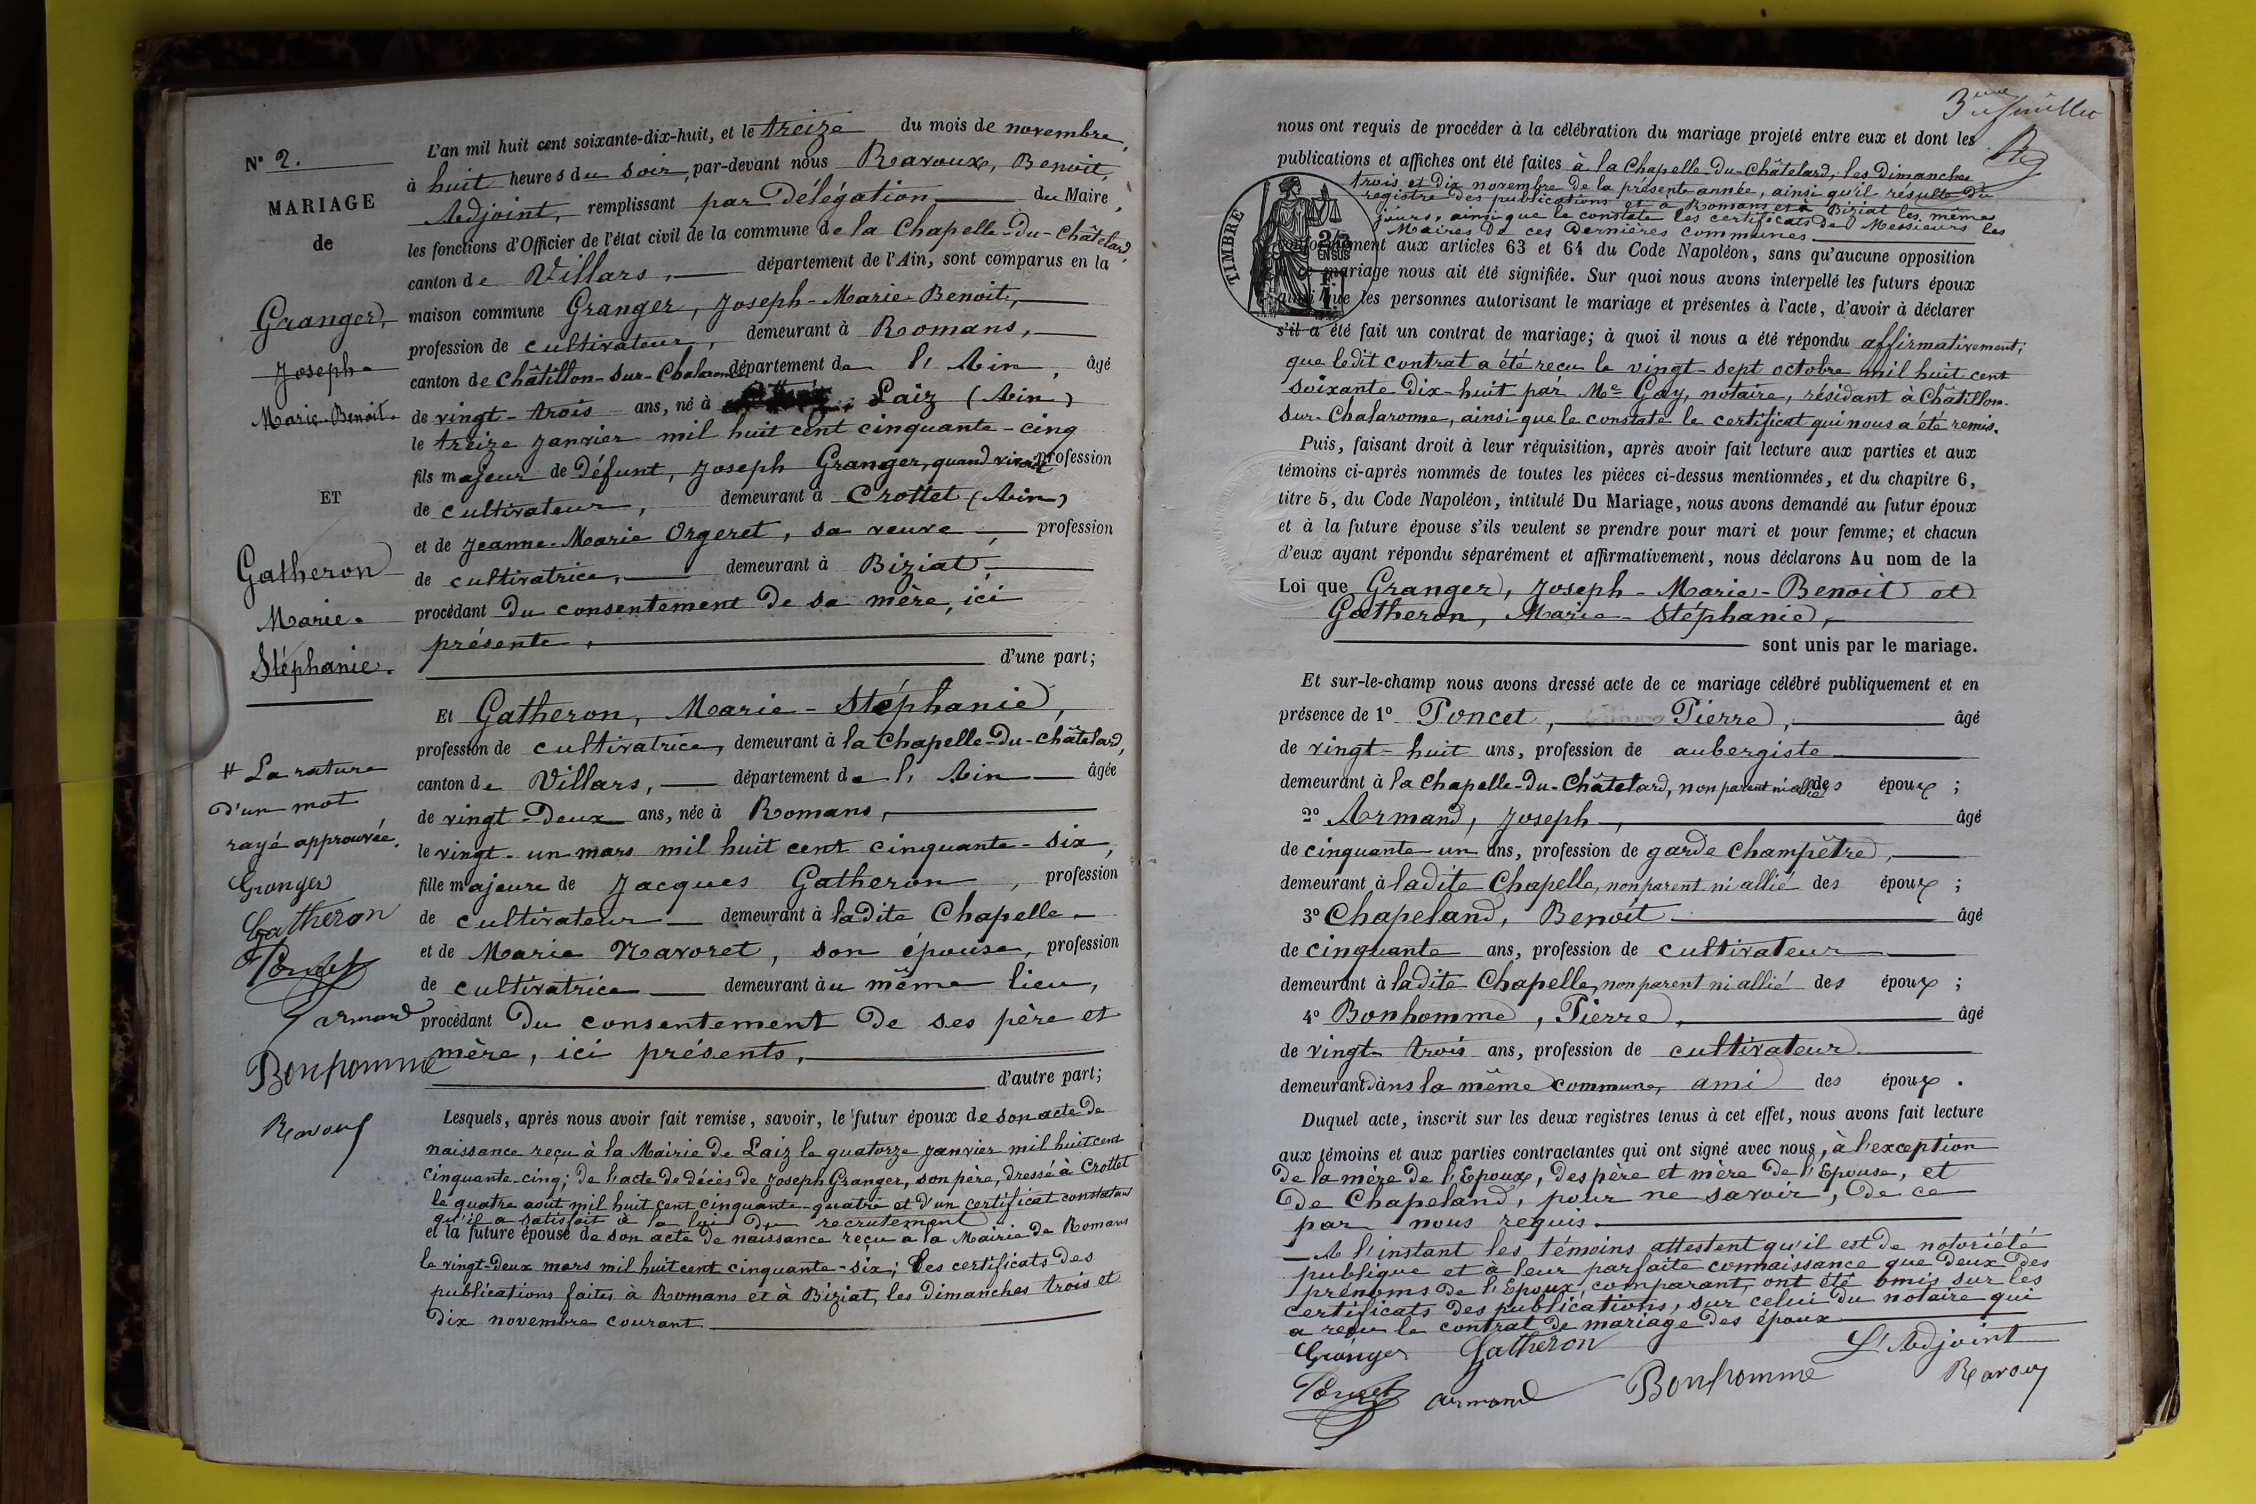 N° 2.
MARIAGE
de
Granger,
Joseph-
Marie-Benoit.
ET
Gatheron
Marie-
Stéphanie.
# La rature
d'un mot
rayé approuvée.
Granger
Gatheron
Poncet
armand
Bonhomme
Ravoux
L'an mil huit cent soixante-dix-huit, et le treize du mois de novembre,
à huit heures du soir, par-devant nous Ravoux, Benoit,
Adjoint, remplissant par Délégation du Maire,
les fonctions d'Officier de l'état civil de la commune de la Chapelle-du-Châtelard,
canton de Villars, département de l'Ain, sont comparus en la
maison commune Granger, Joseph-Marie-Benoit,
profession de cultivateur, demeurant à Romans,
canton de Châtillon-sur-Chalaronne, département de l'Ain, âgé
de vingt-trois ans, né à Laiz (Ain)
le treize janvier mil huit cent cinquante-cinq
fils majeur de Défunt, Joseph Granger, quand vivait profession
de cultivateur, demeurant à Crottet (Ain)
et de Jeanne-Marie Orgeret, sa veuve, profession
de cultivatrice, demeurant à Biziat,
procédant du consentement de sa mère, ici
présente,
d'une part;
Et Gatheron, Marie-Stéphanie,
profession de cultivatrice, demeurant à la Chapelle-du-Châtelard,
canton de Villars, département de l'Ain âgée
de vingt-deux ans, née à Romans,
le vingt-un mars mil huit cent cinquante-six,
fille majeure de Jacques Gatheron, profession
de cultivateur demeurant à ladite Chapelle
et de Marie Navoret, son épouse, profession
de cultivatrice demeurant au même lieu,
procédant du consentement de ses père et
mère, ici présents,
d'autre part;
Lesquels, après nous avoir fait remise, savoir, le futur époux de son acte de
naissance reçu à la Mairie de Laiz le quatorze janvier mil huit cent
cinquante-cinq; de l'acte de décès de Joseph Granger, son père, dressé à Crottet
le quatre août mil huit cent cinquante-quatre et d'un certificat constatant
qu'il a satisfait à la loi du recrutement
et la future épouse de son acte de naissance reçu à la Mairie de Romans
le vingt-deux mars mil huit cent cinquante-six; des certificats des
publications faites à Romans et à Biziat, les dimanches trois et
dix novembre courant
3ème feuillet
nous ont requis de procéder à la célébration du mariage projeté entre eux et dont les
publications et affiches ont été faites à la Chapelle-du-Châtelard, les Dimanches
trois et dix novembre de la présente année, ainsi qu'il résulte du
registre des publications et à Romans et à Biziat les mêmes
jours, ainsi que le constate les certificats de Messieurs les
Maires de ces Dernières communes
conformément aux articles 63 et 64 du Code Napoléon, sans qu'aucune opposition
ce mariage nous ait été signifiée. Sur quoi nous avons interpellé les futurs époux
ainsi que les personnes autorisant le mariage et présentes à l'acte, d'avoir à déclarer
s'il a été fait un contrat de mariage; à quoi il nous a été répondu affirmativement;
que ledit contrat a été reçu le vingt-sept octobre mil huit cent
soixante dix-huit par Me Gay, notaire, résidant à Châtillon-
sur-Chalaronne, ainsi que le constate le certificat qui nous a été remis.
TIMBRE
2/10
EN SUS
Puis, faisant droit à leur réquisition, après avoir fait lecture aux parties et aux
témoins ci-après nommés de toutes les pièces ci-dessus mentionnées, et du chapitre 6,
titre 5, du Code Napoléon, intitulé Du Mariage, nous avons demandé au futur époux
et à la future épouse s'ils veulent se prendre pour mari et pour femme; et chacun
d'eux ayant répondu séparément et affirmativement, nous déclarons Au nom de la
Loi que Granger, Joseph-Marie-Benoit et
Gatheron, Marie-Stéphanie,
sont unis par le mariage.
Et sur-le-champ nous avons dressé acte de ce mariage célébré publiquement et en
présence de 1° Poncet, Pierre, âgé
de vingt-huit ans, profession de aubergiste
demeurant à la Chapelle-du-Châtelard, non parent ni allié des époux;
2° Armand, Joseph, âgé
de cinquante-un ans, profession de garde champêtre,
demeurant à ladite Chapelle, non parent ni allié des époux;
3° Chapeland, Benoît âgé
de cinquante ans, profession de cultivateur
demeurant à ladite Chapelle, non parent ni allié des époux;
4° Bonhomme, Pierre, âgé
de vingt-trois ans, profession de cultivateur
demeurant dans la même commune, ami des époux.
Duquel acte, inscrit sur les deux registres tenus à cet effet, nous avons fait lecture
aux témoins et aux parties contractantes qui ont signé avec nous, à l'exception
de la mère de l'Epoux, des père et mère de l'Epouse, et
de Chapeland, pour ne savoir, de ce
par nous requis.
A l'instant les témoins attestent qu'il est de notoriété
publique et à leur parfaite connaissance que deux des
prénoms de l'Epoux, comparant, ont été omis sur les
certificats des publications, sur celui du notaire qui
a reçu le contrat de mariage des époux
Granger Gatheron L'Adjoint
Poncet armand Bonhomme Ravoux